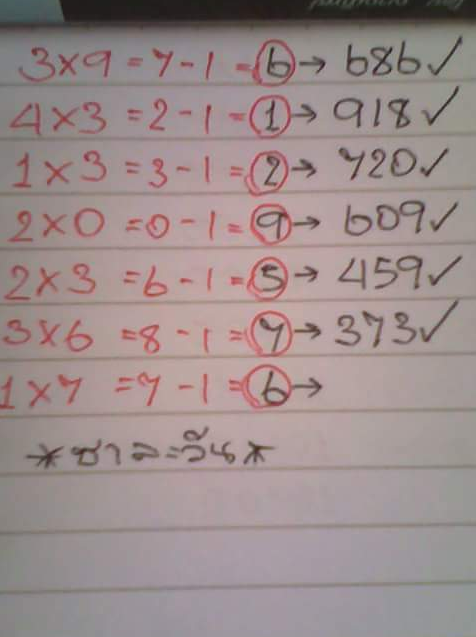 3×9 = 7-1 = 6 → 686 ✓
4×3 = 2-1 = 1 → 918 ✓
1×3 = 3-1 = 2 → 720 ✓
2×0 = 0-1 = 9 → 609 ✓
2×3 = 6-1 = 5 → 459 ✓
3×6 = 8-1 = 7 → 373 ✓
1×7 = 7-1 = 6 →
*ซาละวิน*